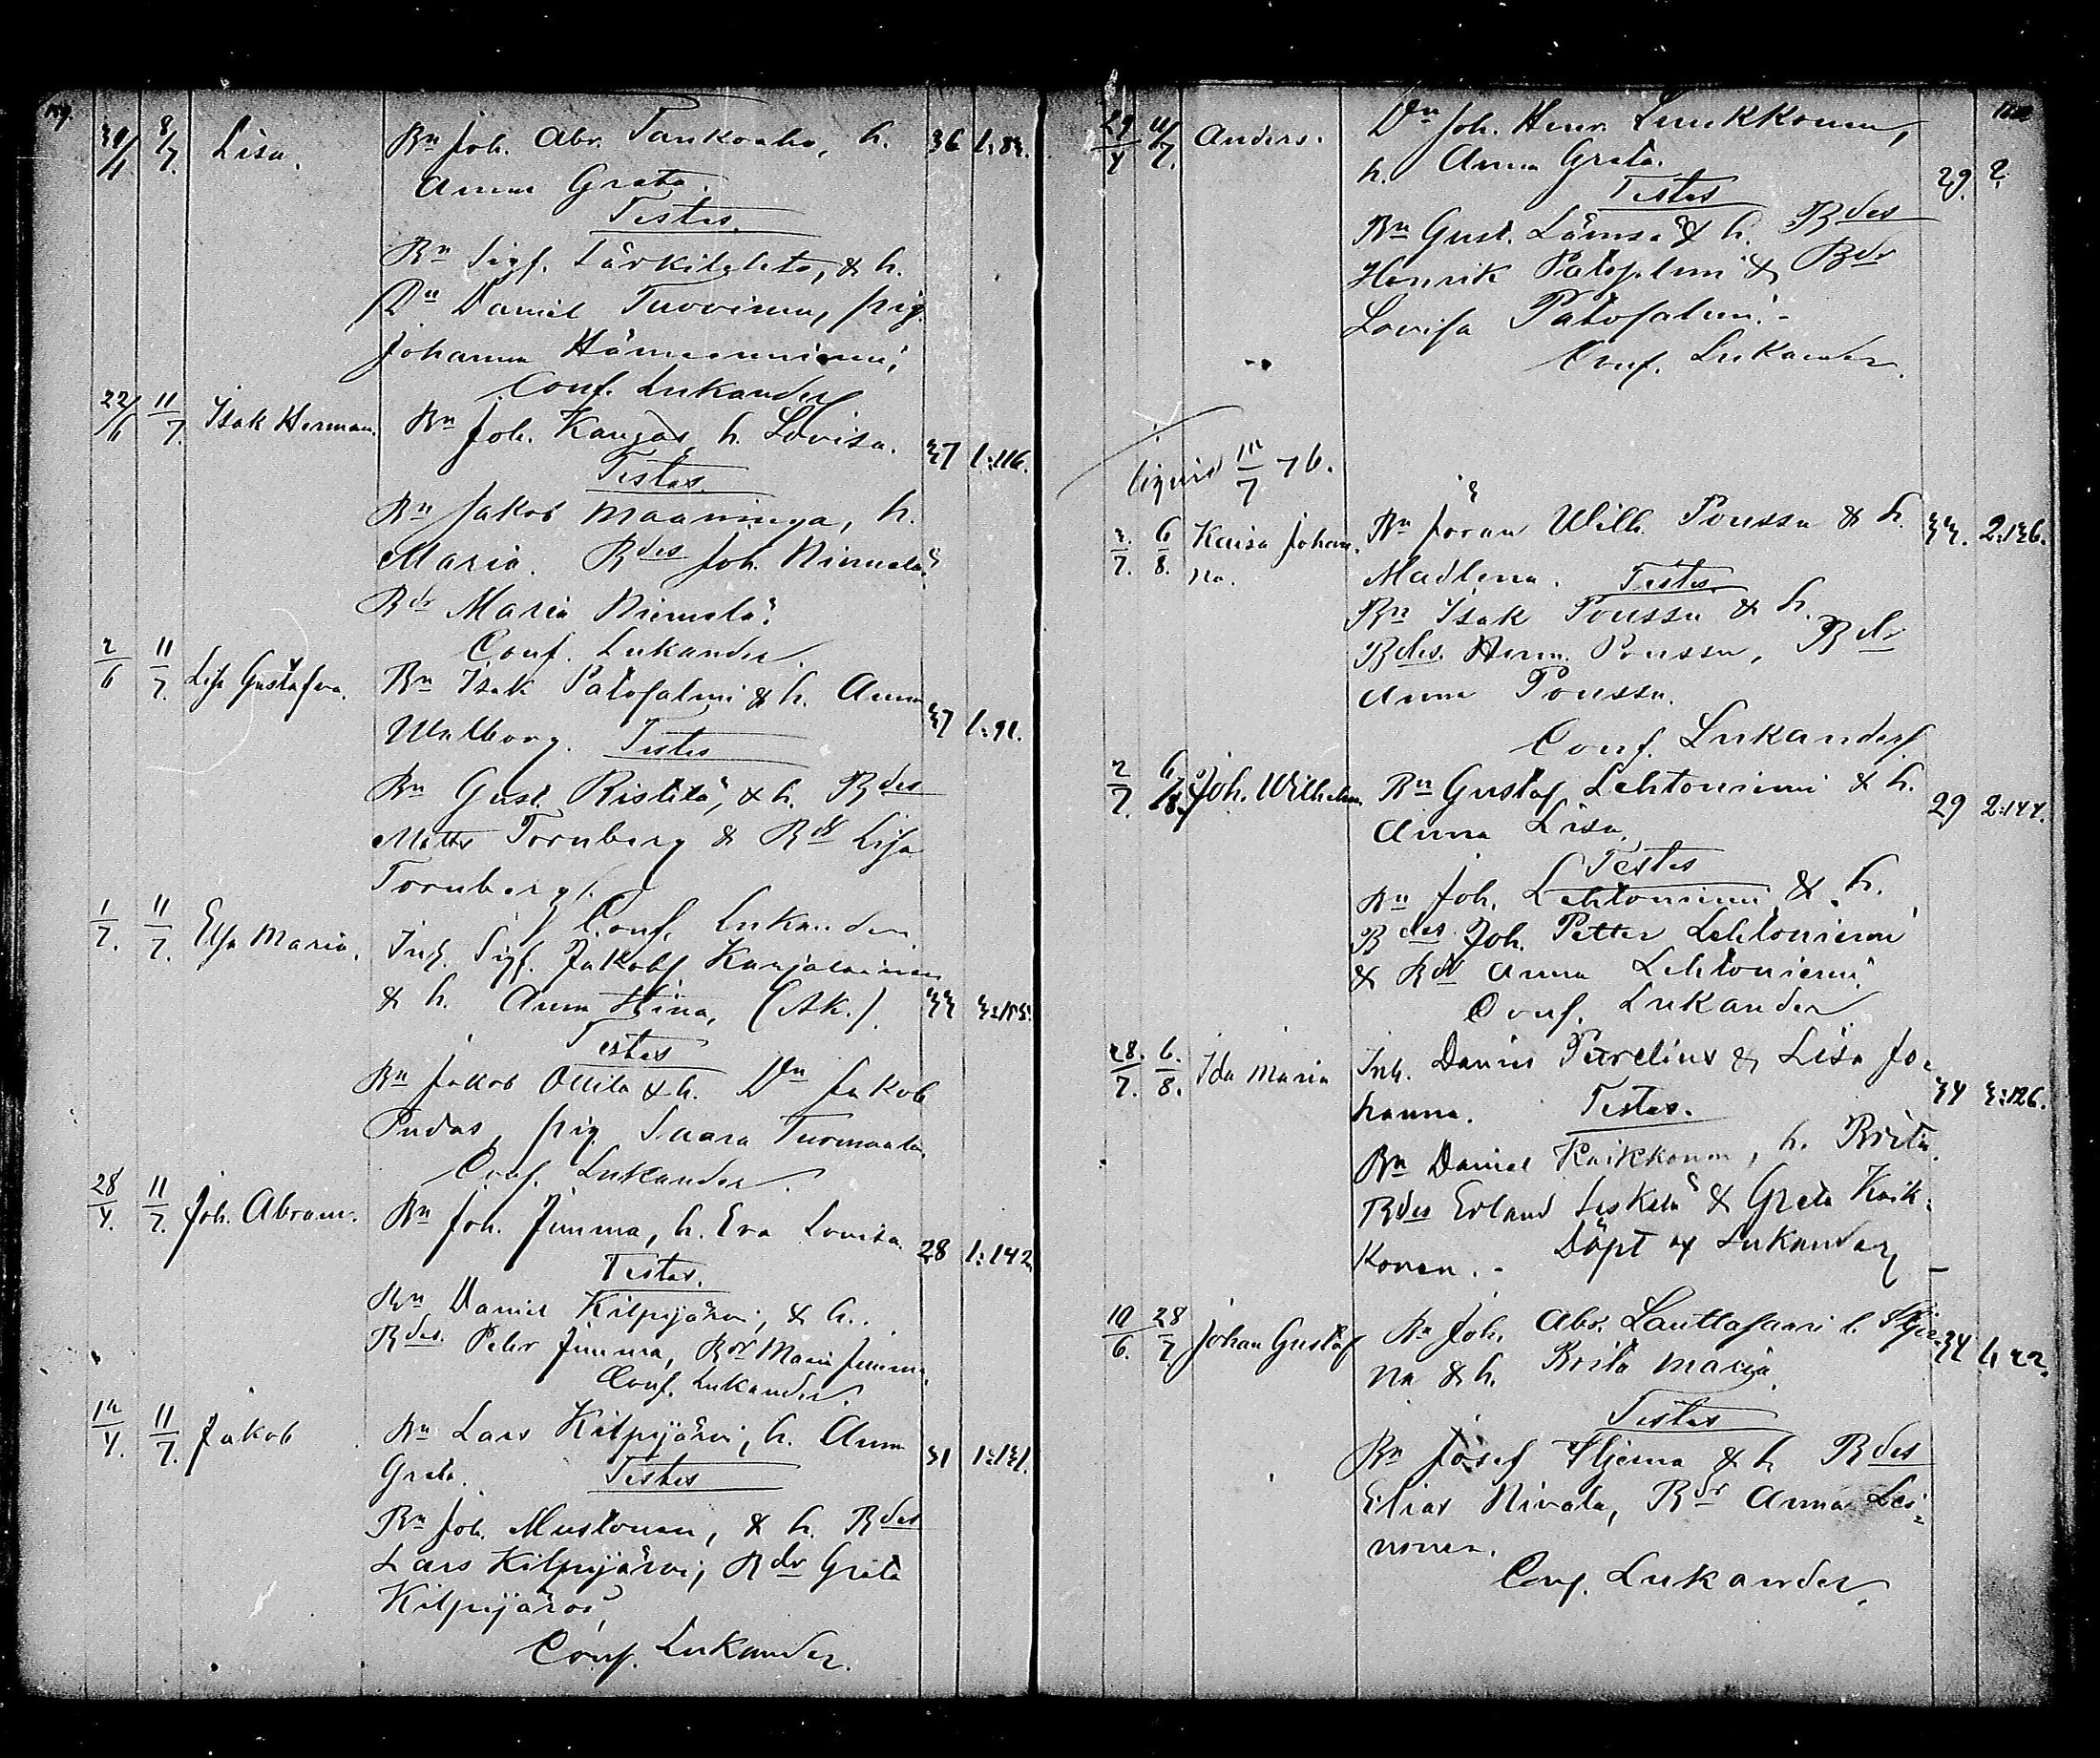 159.
30/4 8/7. Lisa. Bn Joh. Abr. Tankoaho, h. 36 1:83.
Anna Greta.
Testes.
Bn Sigf. Särkilehto, & h.
Dn Daniel Tuovinen, pig.
Johanna
Conf. Lukander
22/6 11/7. Isak Herman. Bn Joh. Kangas, h. Lovisa. 37 1:116.
Testes.
Bn Jakob Maaninga, h.
Maria. Bdes Joh. Niemelä
Bdr Maria Niemelä.
Conf. Lukander.
2/6 11/7. Lisa Gustafva. Bn Isak Patosalmi & h. Anna
Walborg. Testes 37 1:91.
Bn Gust. Ristilä, & h. Bdes
Matts Tornberg & Bdr Lisa
Tornberg.
Conf. Lukander.
1/7. 11/7. Elsa Maria. Inh. Sigf. Jakobs Karjalainen
& h. Anna Stina, (Ak.). 33 3:155.
Testes
Bn Jakob Ollila & h. Dn Jakob
Pudas, pig. Saara Turmaala.
Conf. Lukander.
28/4. 11/7. Joh. Abram. Bn Joh. Jumma, h. Eva Lovisa. 28 1:142.
Testes.
Bn Daniel Kilpijärvi, & h.
Bdes. Petr Jumma, Bdr Maria Jumma.
Conf. Lukander.
12/4. 11/7. Jakob Bn Lars Kilpijärvi, h. Anna 31 1:131.
Greta. Testes
Bn Joh. Mustonen, & h. Bdes
Lars Kilpijärvi, Bdr Greta
Kilpijärvi,
Conf. Lukander.
160
29/4 11/7. Anders. Dn Joh. Henr. Luukkonen,
h. Anna Greta. 29. 2.
Testes
Bn Gust. Lämsä & h. Bdes
Henrik Patosalmi & Bdr
Lovisa Patosalmi.-
Conf. Lukander.
7 76.
3/7. 6/8. Kaisa Johan- Bn Jöran Wilh. Poussu & h. 33. 2:136.
na. Madlena. Testes.
Bn Isak Poussu & h.
Bdes. Herm. Poussu, Bdr
Anna Poussu.
Conf. Lukander
2/7. 6/8. Joh. Wilhelm. Bn Gustaf Lehtoniemi & h. 29 2:144.
Anna Lisa.
Testes
Bn Joh. Lehtoniemi & h.
Bdes Joh. Petter Lehtoniemi
& Bdr Anna Lehtoniemi.
Conf. Lukander
28./7. 6./8. Ida Maria Inh. Daniel Parelius & Lisa Jo- 34 3:126.
hanna. Testes.
Bn Daniel Kaikkonen, h. Brita.
Bdes Erland Leskelä & Greta Kaik-
konen. - Döpt af Lukander
10/6. 28/7. Johan Gustaf Bn Joh. Abr. Lauttasaari l. Stjer- 34
na & h. Brita Maria.
Testes
Bn Josef Stjerna & h. Bdes
Elias Nivala, Bdr Anna Lei-
nonen.
Conf. Lukander.